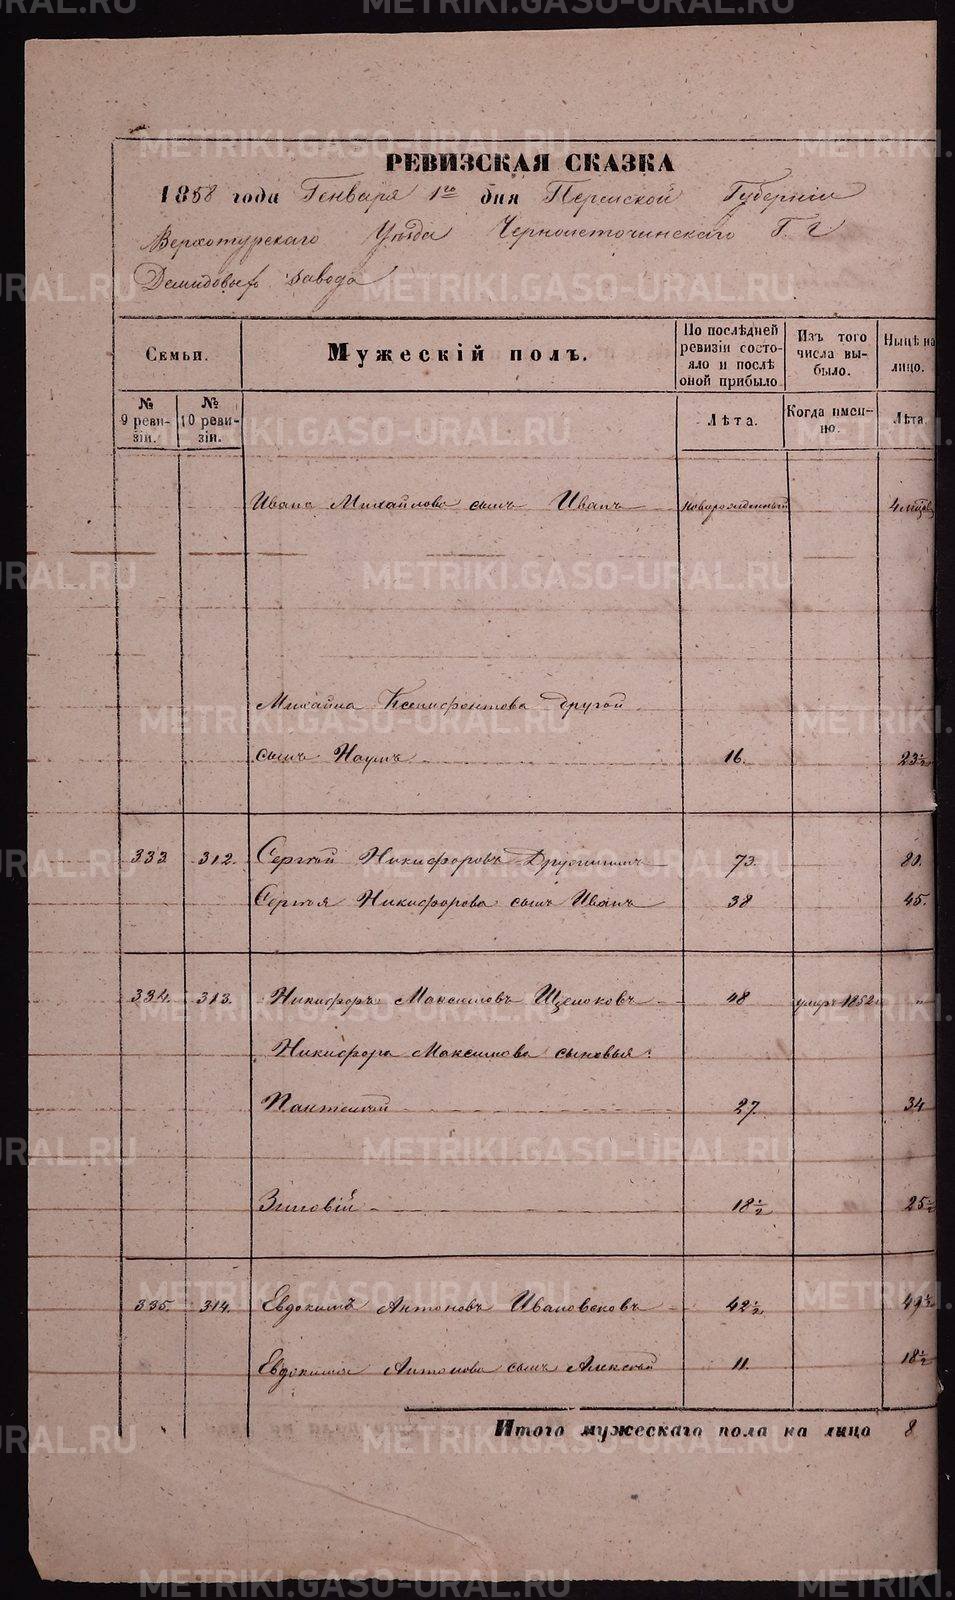 РЕВИЗСКАЯ СКАЗКА
1858 года Генваря 1го дня Пермской Губерніи
Верхотурскаго Уѣзда Черноисточинскаго Г. г
Демидовыхъ Завода
Семьи.
Мужескій полъ.
По послѣдней ревизіи состояло и послѣ оной прибыло
Изъ того числа выбыло.
Нынѣ на лицо.
№ 9 ревизіи.
№ 10 ревизіи.
Лѣта.
Когда именно.
Лѣта.
Ивана Михайлова сынъ Иванъ новорожденный 4 мѣсяц
Михайла Ксенофонтова другой
сынъ Наумъ 16. 23½
333 312. Сергѣй Никифоровъ 73. 80.
Сергѣя Никифорова сынъ Иванъ 38 45.
334. 313. Никифоръ Максимовъ Щелоковъ 48 умеръ 1852 "
Никифора Максимова сыновья:
Пантелѣй 27. 34
Зиновій 18½ 25½
335. 314. Евдокимъ Антоновъ Ивановсковъ 42½ 49½
Евдокима Антонова сынъ Алексѣй 11. 18½
Итого мужескаго пола на лицо 8
METRIKI.GASO-URAL.RU